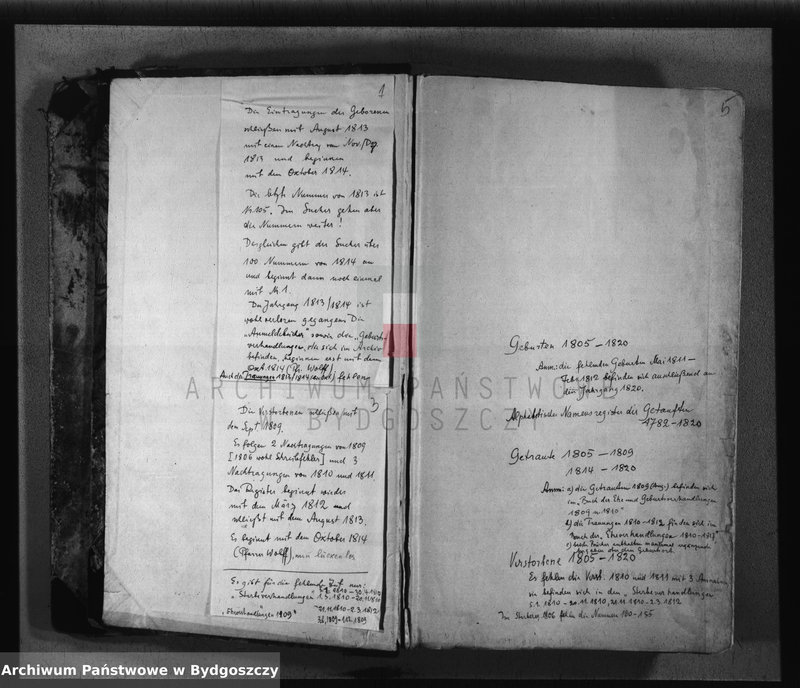 1
Die Eintragungen der Geborenen
schließen mit August 1813
mit einem Nachtrag vom Nov./Dez.
1813 und beginnen
mit dem Oktober 1814.
Die letzte Nummer von 1813 ist
Nr. 105. Im Sucher gehen aber
die Nummern weiter!
Desgleichen gibt der Sucher über
100 Nummern von 1814 an
und beginnt dann noch einmal
mit Nr 1.
Der Jahrgang 1813/1814 ist
wohl verloren gegangen. Die
"Anmeldebücher" sowie die "Geburts-
verhandlungen, die sich im Archiv
befinden, beginnen erst mit dem
Okt. 1814 (Pfr. Wolff).
Auch die Trauungen 1813/1814 fehlen
3
Die Verstorbenen schließen mit
dem Sept 1809.
Es folgen 2 Nachtragungen von 1809
[1806 wohl Schreibfehler] und 3
Nachtragungen von 1810 und 1811
Das Register beginnt wieder
mit dem März 1812 und
schließt mit dem August 1813.
Es beginnt mit dem Oktober 1814
(Pfarrer Wolff), nun lückenlos
Es gibt für die fehlende Zeit nur:
"Sterbeverhandlungen 1.5.1810 - 20.11.1810
21.11.1810 - 2.3.1812
"Sterbeverhandlungen 1809"
5
Geburten 1805 - 1820
Anm: die fehlenden Geburten Mai 1811 -
1812 befinden sich anschließend an
den Jahrgang 1820.
Alphabetisches Namensregister der Getauften
1782 - 1820
Getraute 1805 - 1809
1814 - 1820
Anm: a) die Getrauten 1809 (Aug.) befinden sich
im "Buch der Ehe und Geburtsverhandlungen
1809 u 1810"
b) die Trauungen 1810 - 1812 finden sich im
Buch der Eheverhandlungen 1810 - 1813"
Verstorbene 1805 - 1820
Es fehlen die Verst. 1810 und 1811 mit 3 Ausnahmen
sie befinden sich in den "Sterbeverhandlungen
5.1.1810 - 20.11.1810, 21.11.1810 - 2.3.1812
Im Sterbereg 1806 fehlen die Nummern 100-155
ARCHIWUM PAŃSTWOWE
W BYDGOSZCZY
Archiwum Państwowe w Bydgoszczy